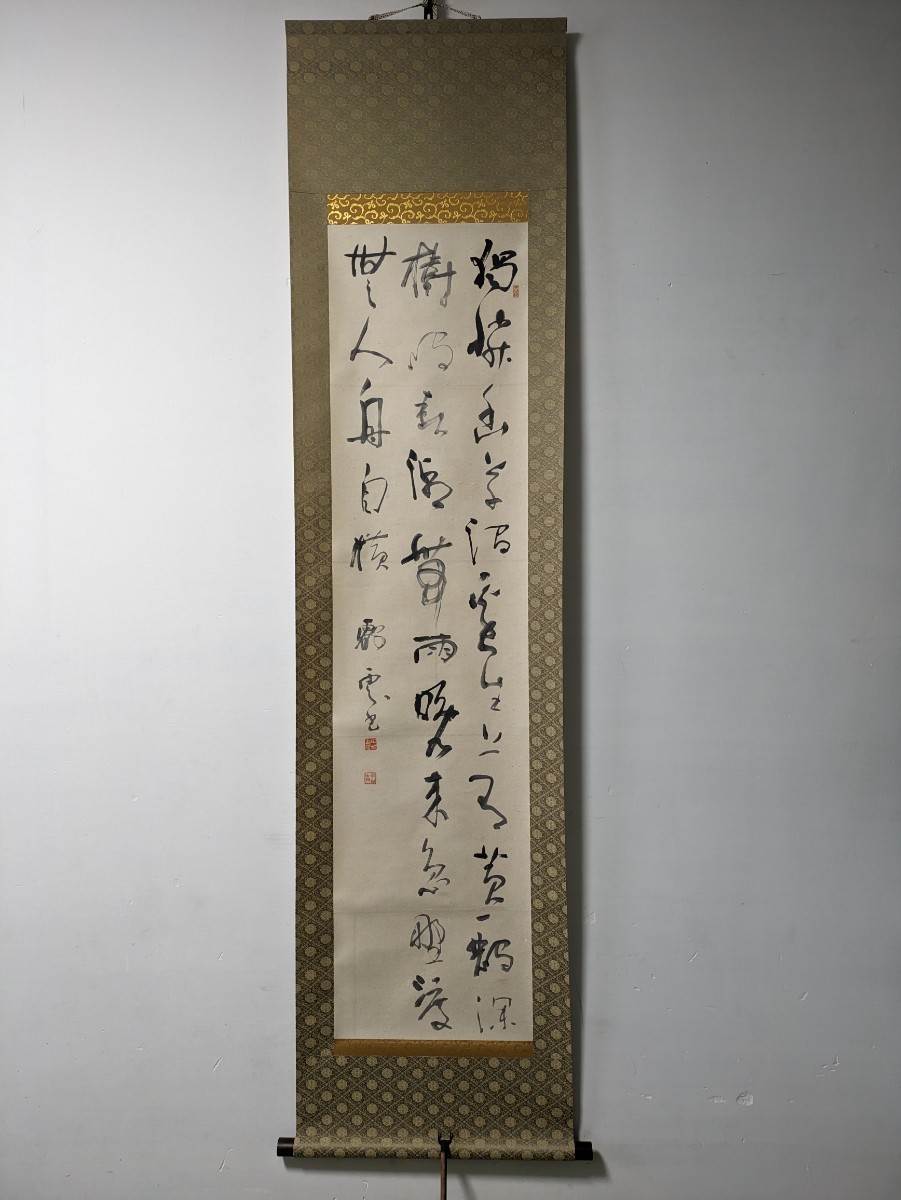 獨憐幽草澗邊生上有黄鸝深
樹鳴春潮帶雨晚來急野渡
無人舟自横 雲書